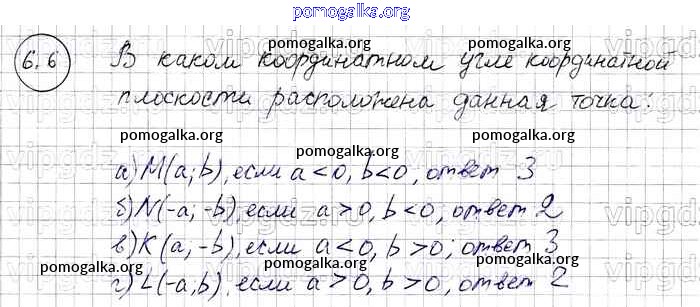 pomogalka.org
6.6 В каком координатном угле координатной
pomogalka.org pomogalka.org
плоскости расположена данная точка:
pomogalka.org pomogalka.org
а) M(a; b), если a<0, b<0, ответ 3
pomogalka.org pomogalka.org
б) N(-a; -b), если a>0, b<0, ответ 2
pomogalka.org pomogalka.org
в) K(a; -b), если a<0, b>0; ответ 3
pomogalka.org pomogalka.org
г) L(-a, b), если a>0, b>0, ответ 2
pomogalka.org